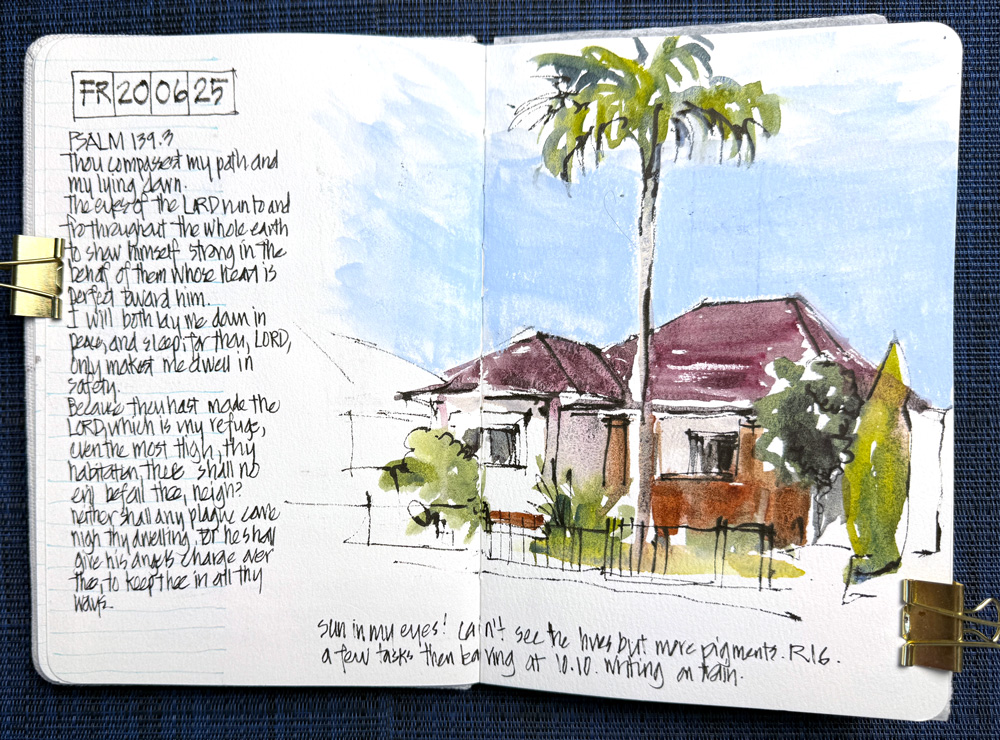 FR 20 06 25
PSALM 139.3
Thou compassest my path and
my lying down.
The eyes of the LORD run to and
fro throughout the whole earth
to show himself strong in the
behalf of them whose heart is
perfect toward him.
I will both lay me down in
peace, and sleep, for thou, LORD,
only makest me dwell in
safety.
Because thou hast made the
LORD, which is my refuge,
even the most High, thy
habitation, there shall no
evil befall thee,
neither shall any plague come
nigh thy dwelling. for he shall
give his angels charge over
thee, to keep thee in all thy
ways.
sun in my eyes! can't see the lines but more pigments. R.16.
a few tasks then leaving at 10.10. writing on train.